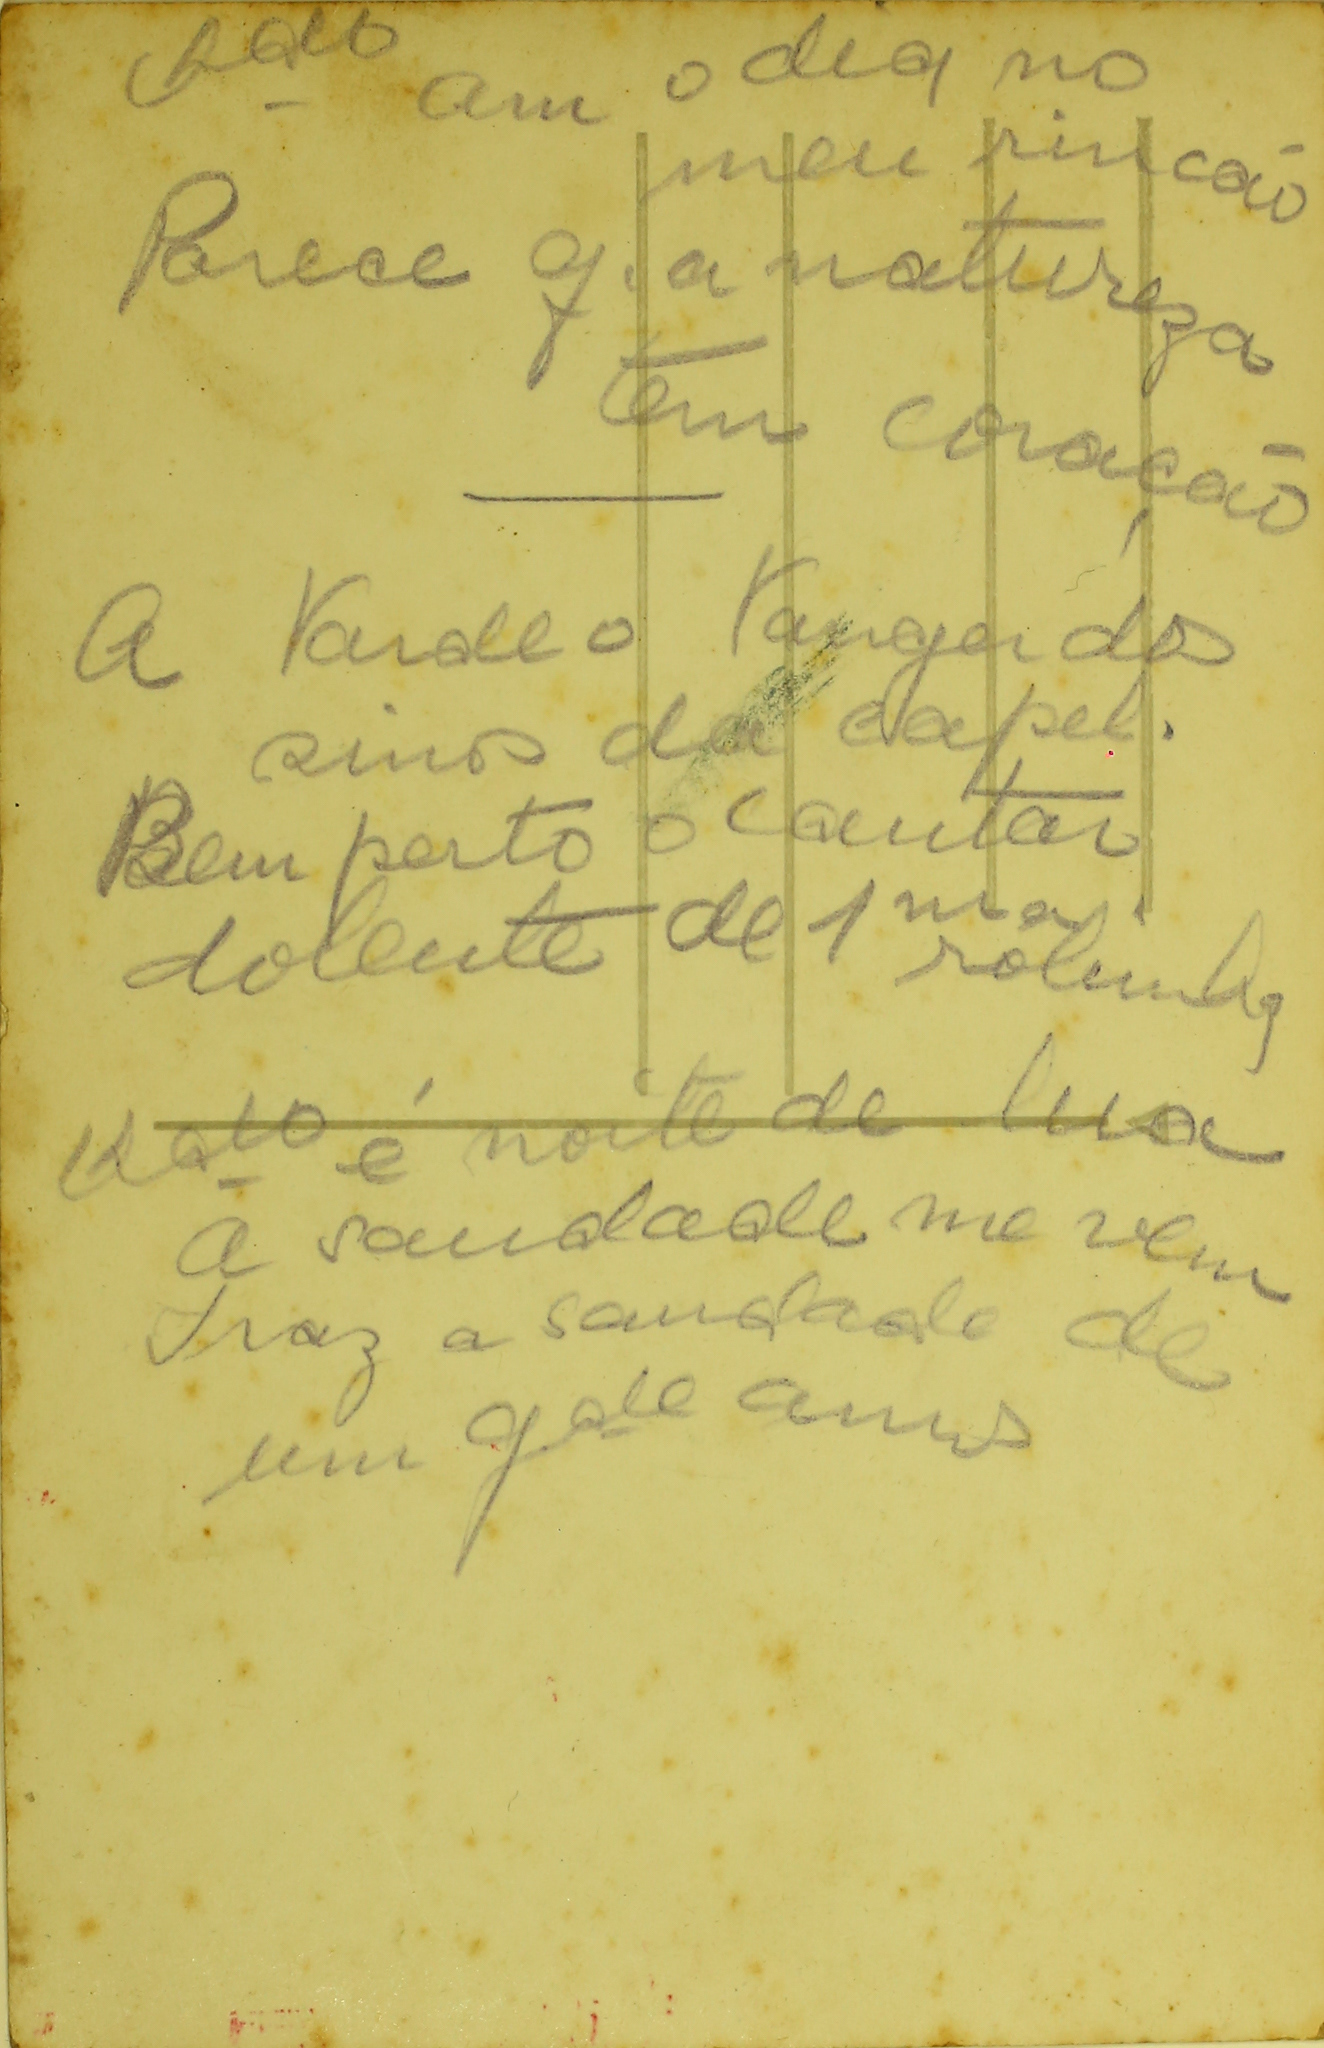 Qdo am o dia no
meu rincão
Parece q. a natureza
tem coração
A tarde o tanger dos
sinos da capel.
Bem perto o cantar
dolente de 1 ma
rolinha
Qdo é noite de lua
A saudade me vem
Traz a saudade de
um qdo anos